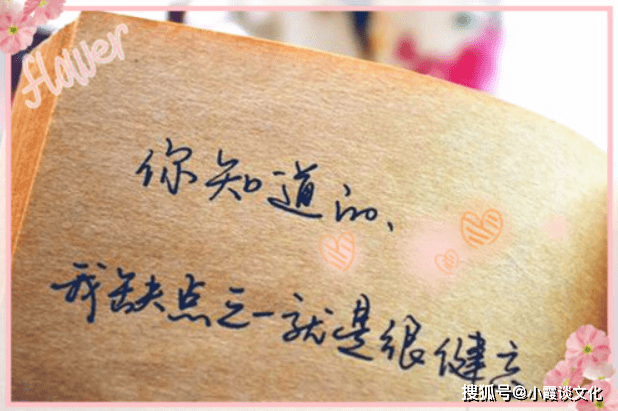 flower
你知道的、
我缺点之一就是很健忘
搜狐号@小霞谈文化